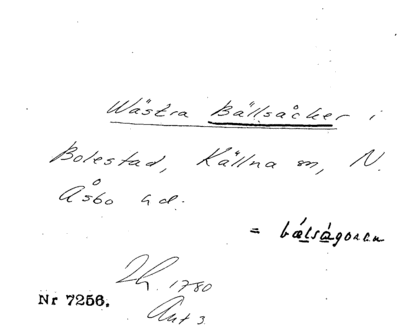 Wästra Bällsåcker i
Bolestad, Källna sn, N.
Åsbo hd.
= bálságoren
Lh. 1780
Akt 3
Nr 7256.